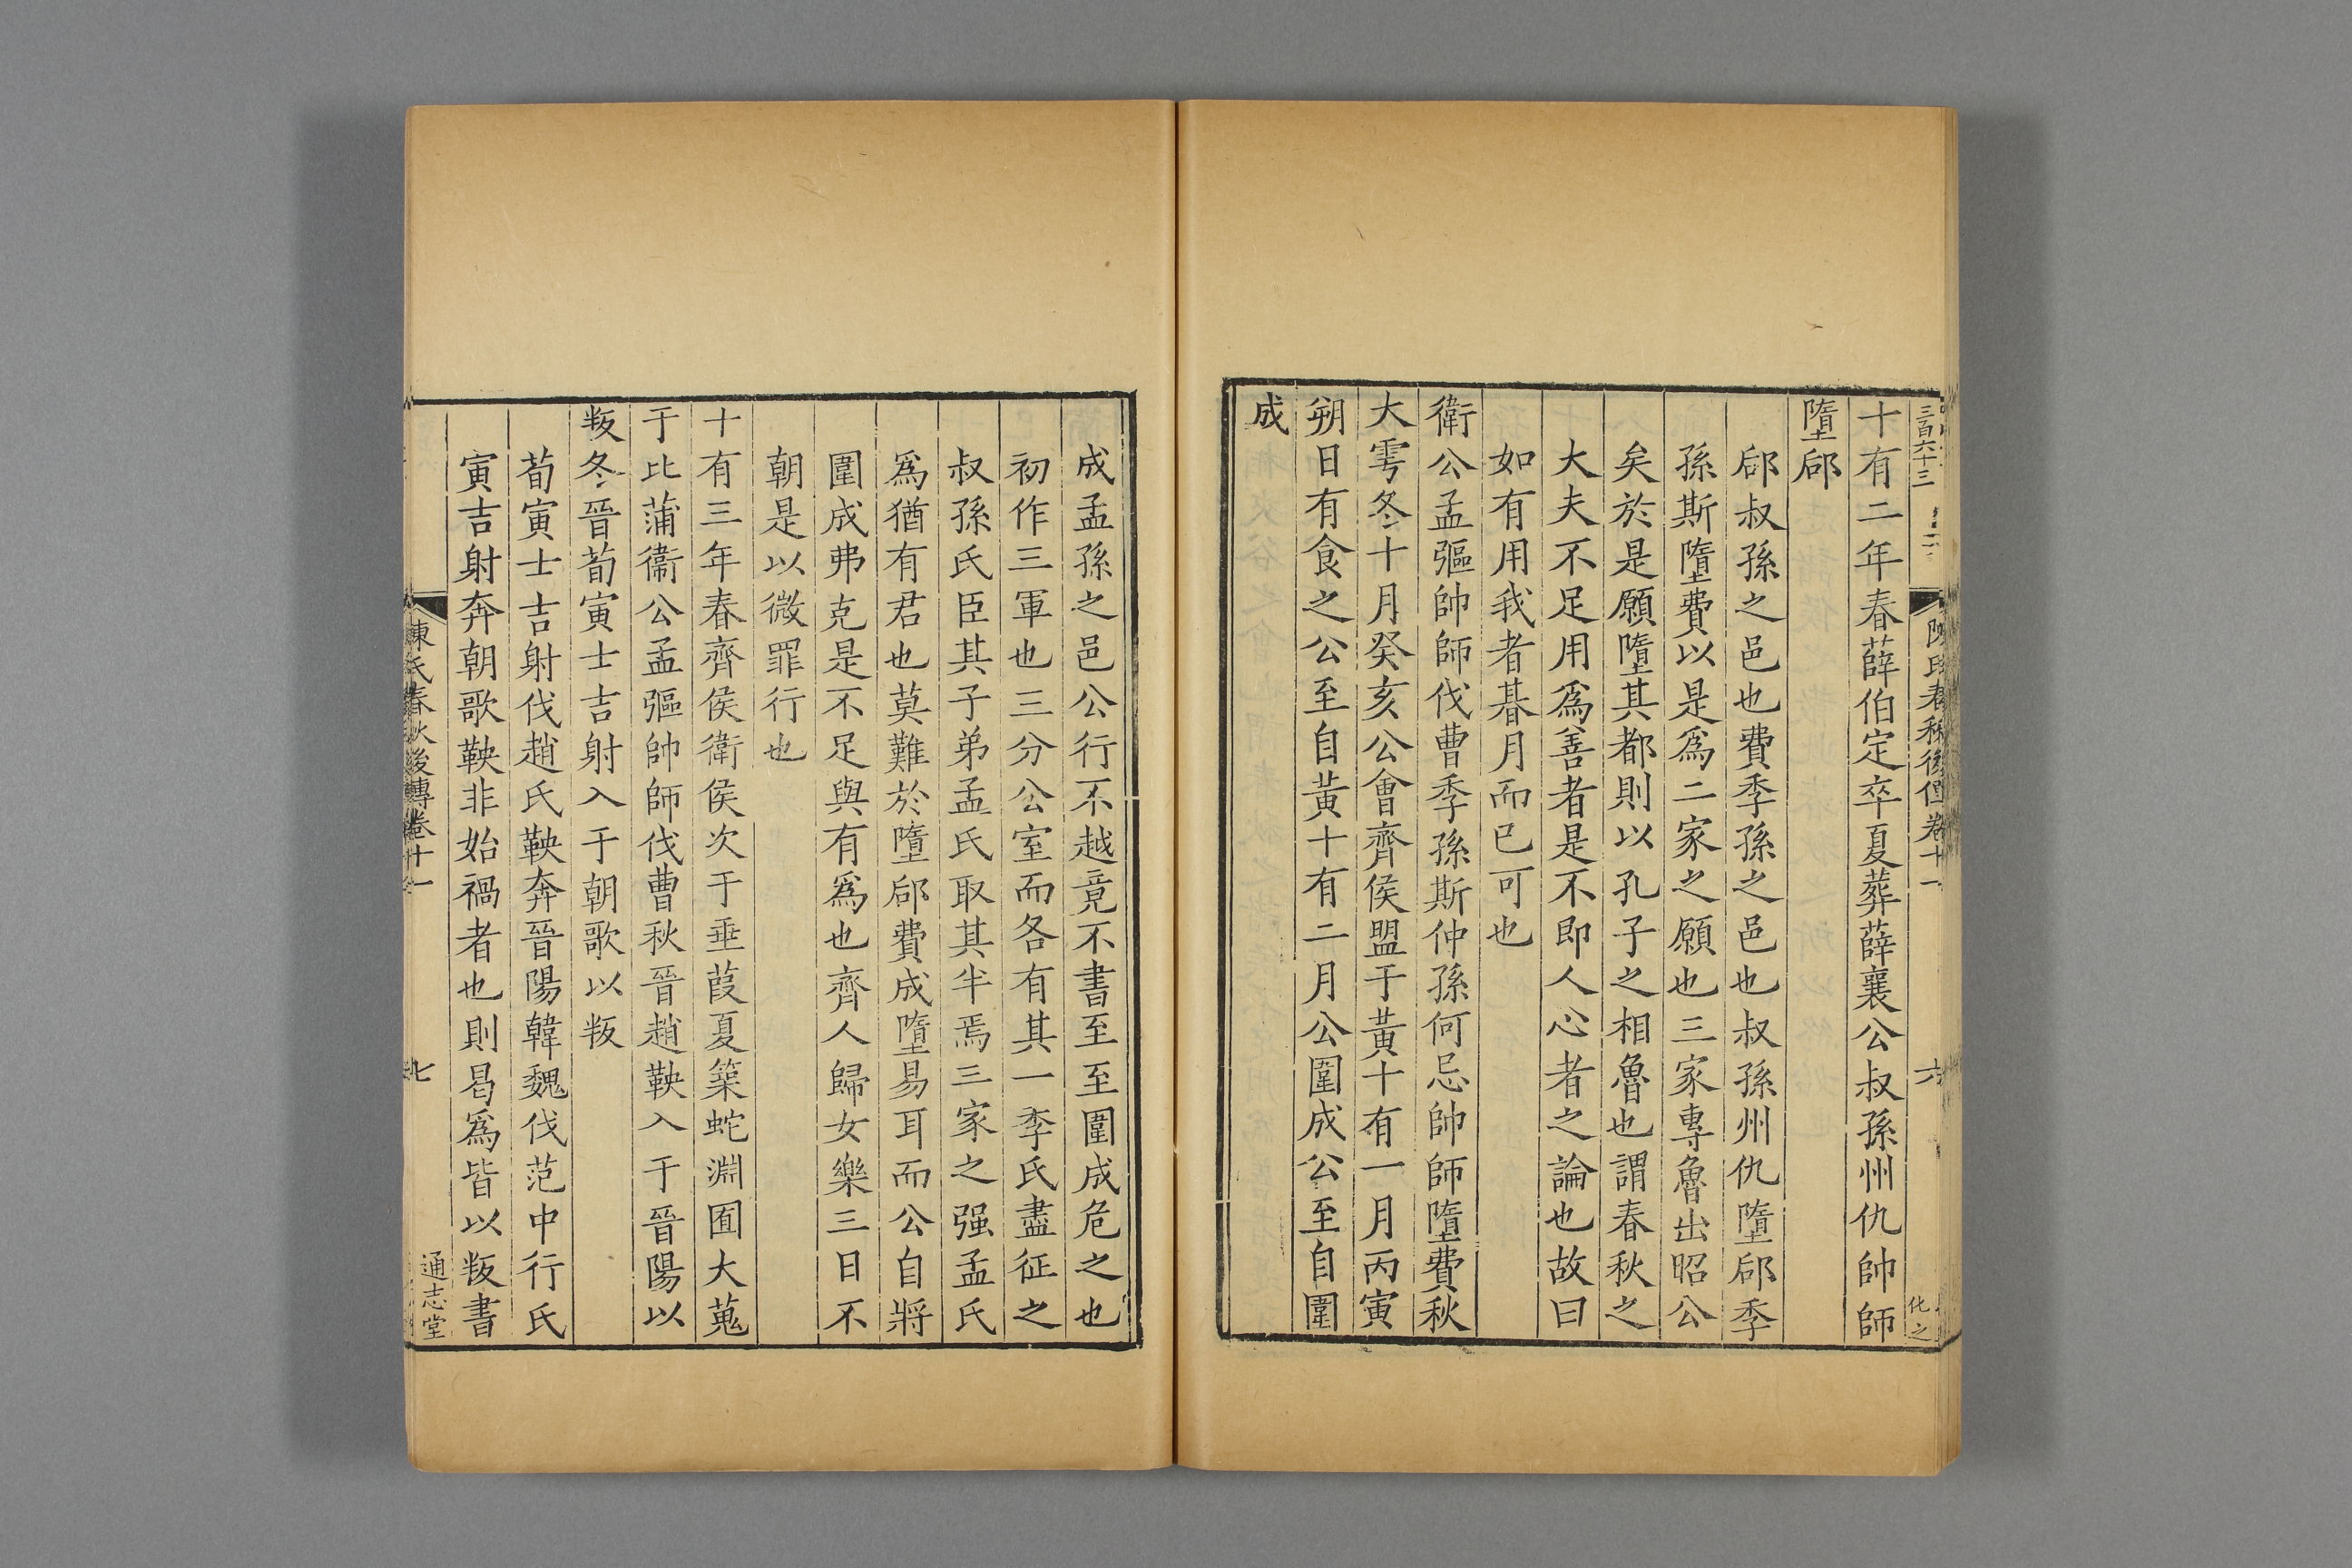 三百六十三
陳氏春秋後傳卷十一
六
化之
十有二年春薛伯定卒夏葬薛襄公叔孫州仇帥師
墮郈
郈叔孫之邑也費季孫之邑也叔孫州仇墮郈季
孫斯墮費以是爲二家之願也三家專魯出昭公
矣於是願墮其都則以孔子之相魯也謂春秋之
大夫不足用爲善者是不即人心者之論也故曰
如有用我者朞月而已可也
衛公孟彄帥師伐曹季孫斯仲孫何忌帥師墮費秋
大雩冬十月癸亥公會齊侯盟于黃十有一月丙寅
朔日有食之公至自黃十有二月公圍成公至自圍
成
成孟孫之邑公行不越竟不書至至圍成危之也
初作三軍也三分公室而各有其一季氏盡征之
叔孫氏臣其子弟孟氏取其半焉三家之强孟氏
爲猶有君也莫難於墮郈費成墮易耳而公自將
圍成弗克是不足與有爲也齊人歸女樂三日不
朝是以微罪行也
十有三年春齊侯衛侯次于垂葭夏築蛇淵囿大蒐
于比蒲衞公孟彄帥師伐曹秋晉趙鞅入于晉陽以
叛冬晉荀寅士吉射入于朝歌以叛
荀寅士吉射伐趙氏鞅奔晉陽韓魏伐范中行氏
寅吉射奔朝歌鞅非始禍者也則曷爲皆以叛書
陳氏春秋後傳卷十一
七
通志堂